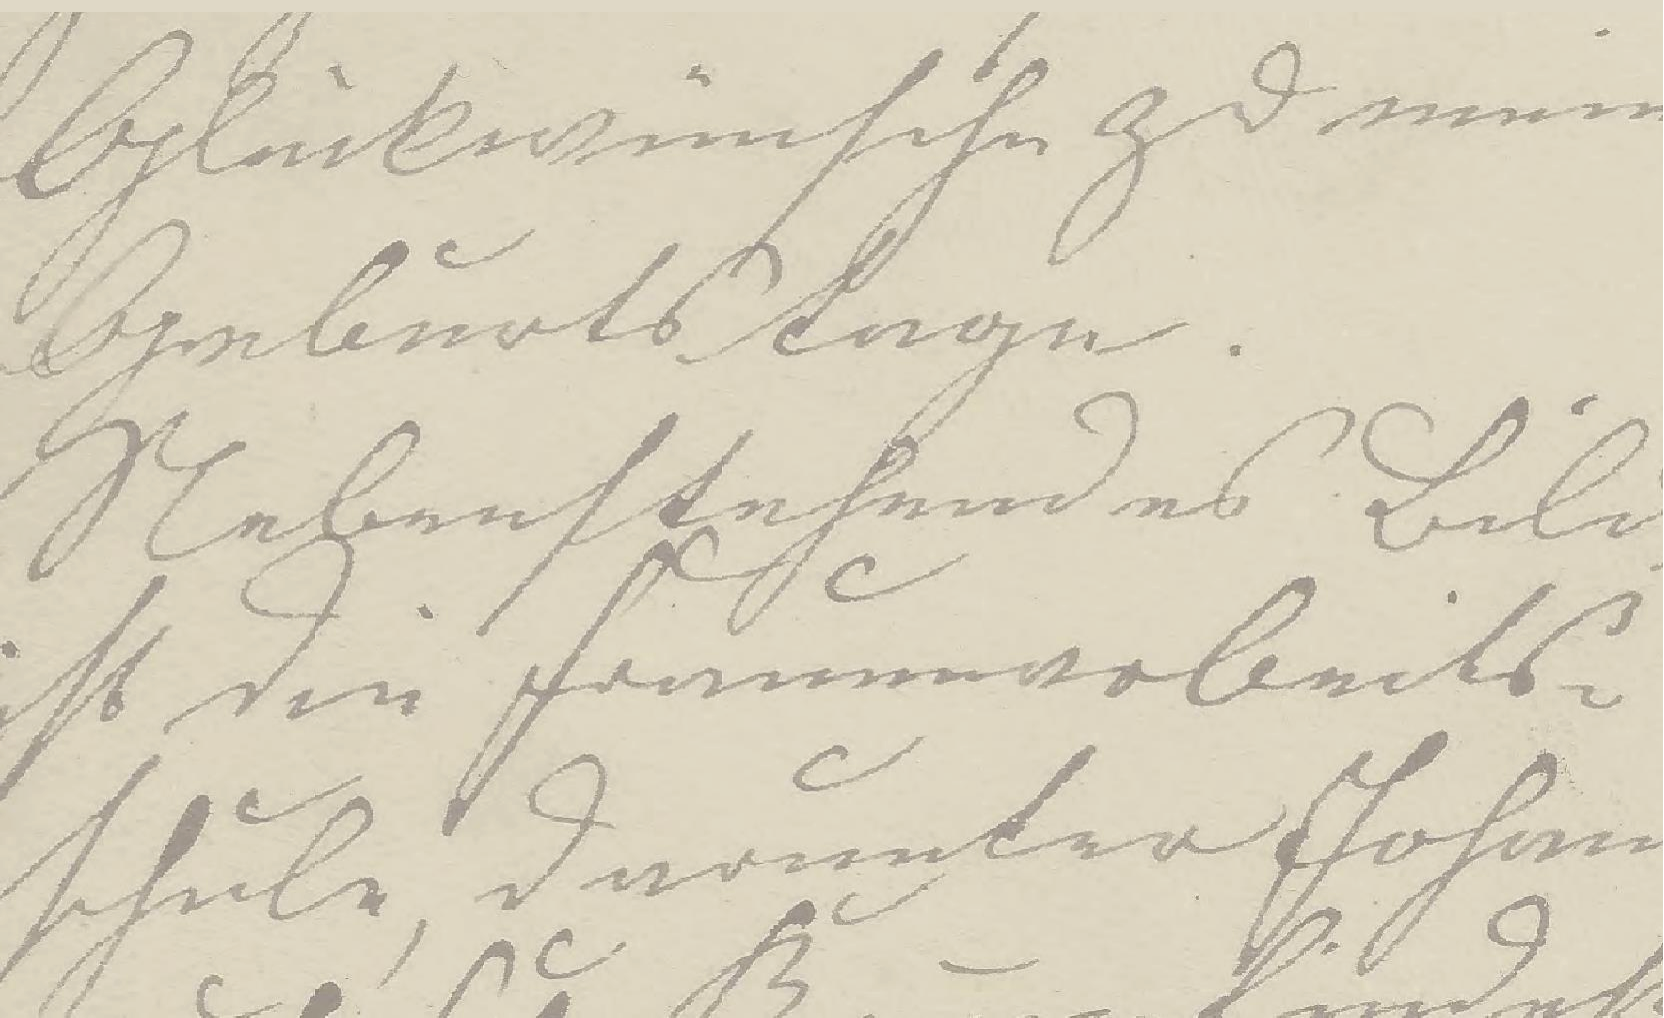 Glückwünsche zu mein
Geburtstage.
Nebenstehendes Bild
ist die Frauenarbeits-
schule, darunter Johan